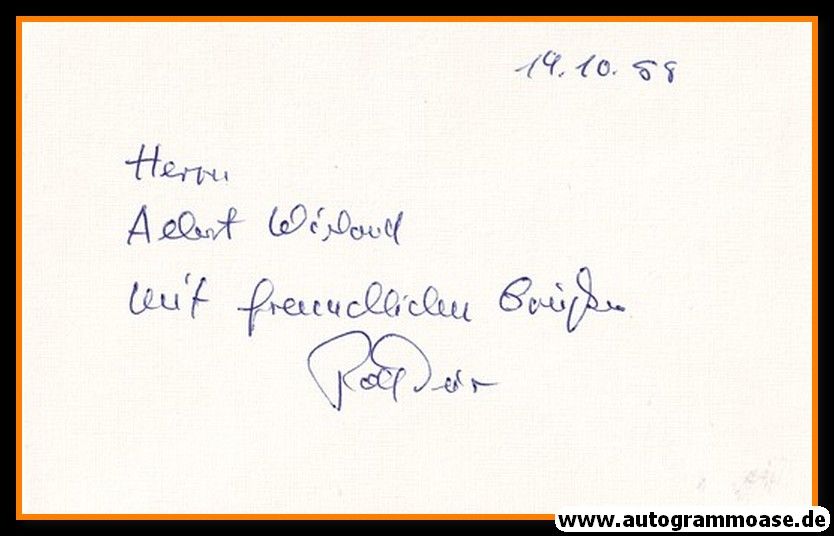 19.10.88
Herrn
Albert Wieland
mit freundlichen Grüßen
Rolf
www.autogrammoase.de